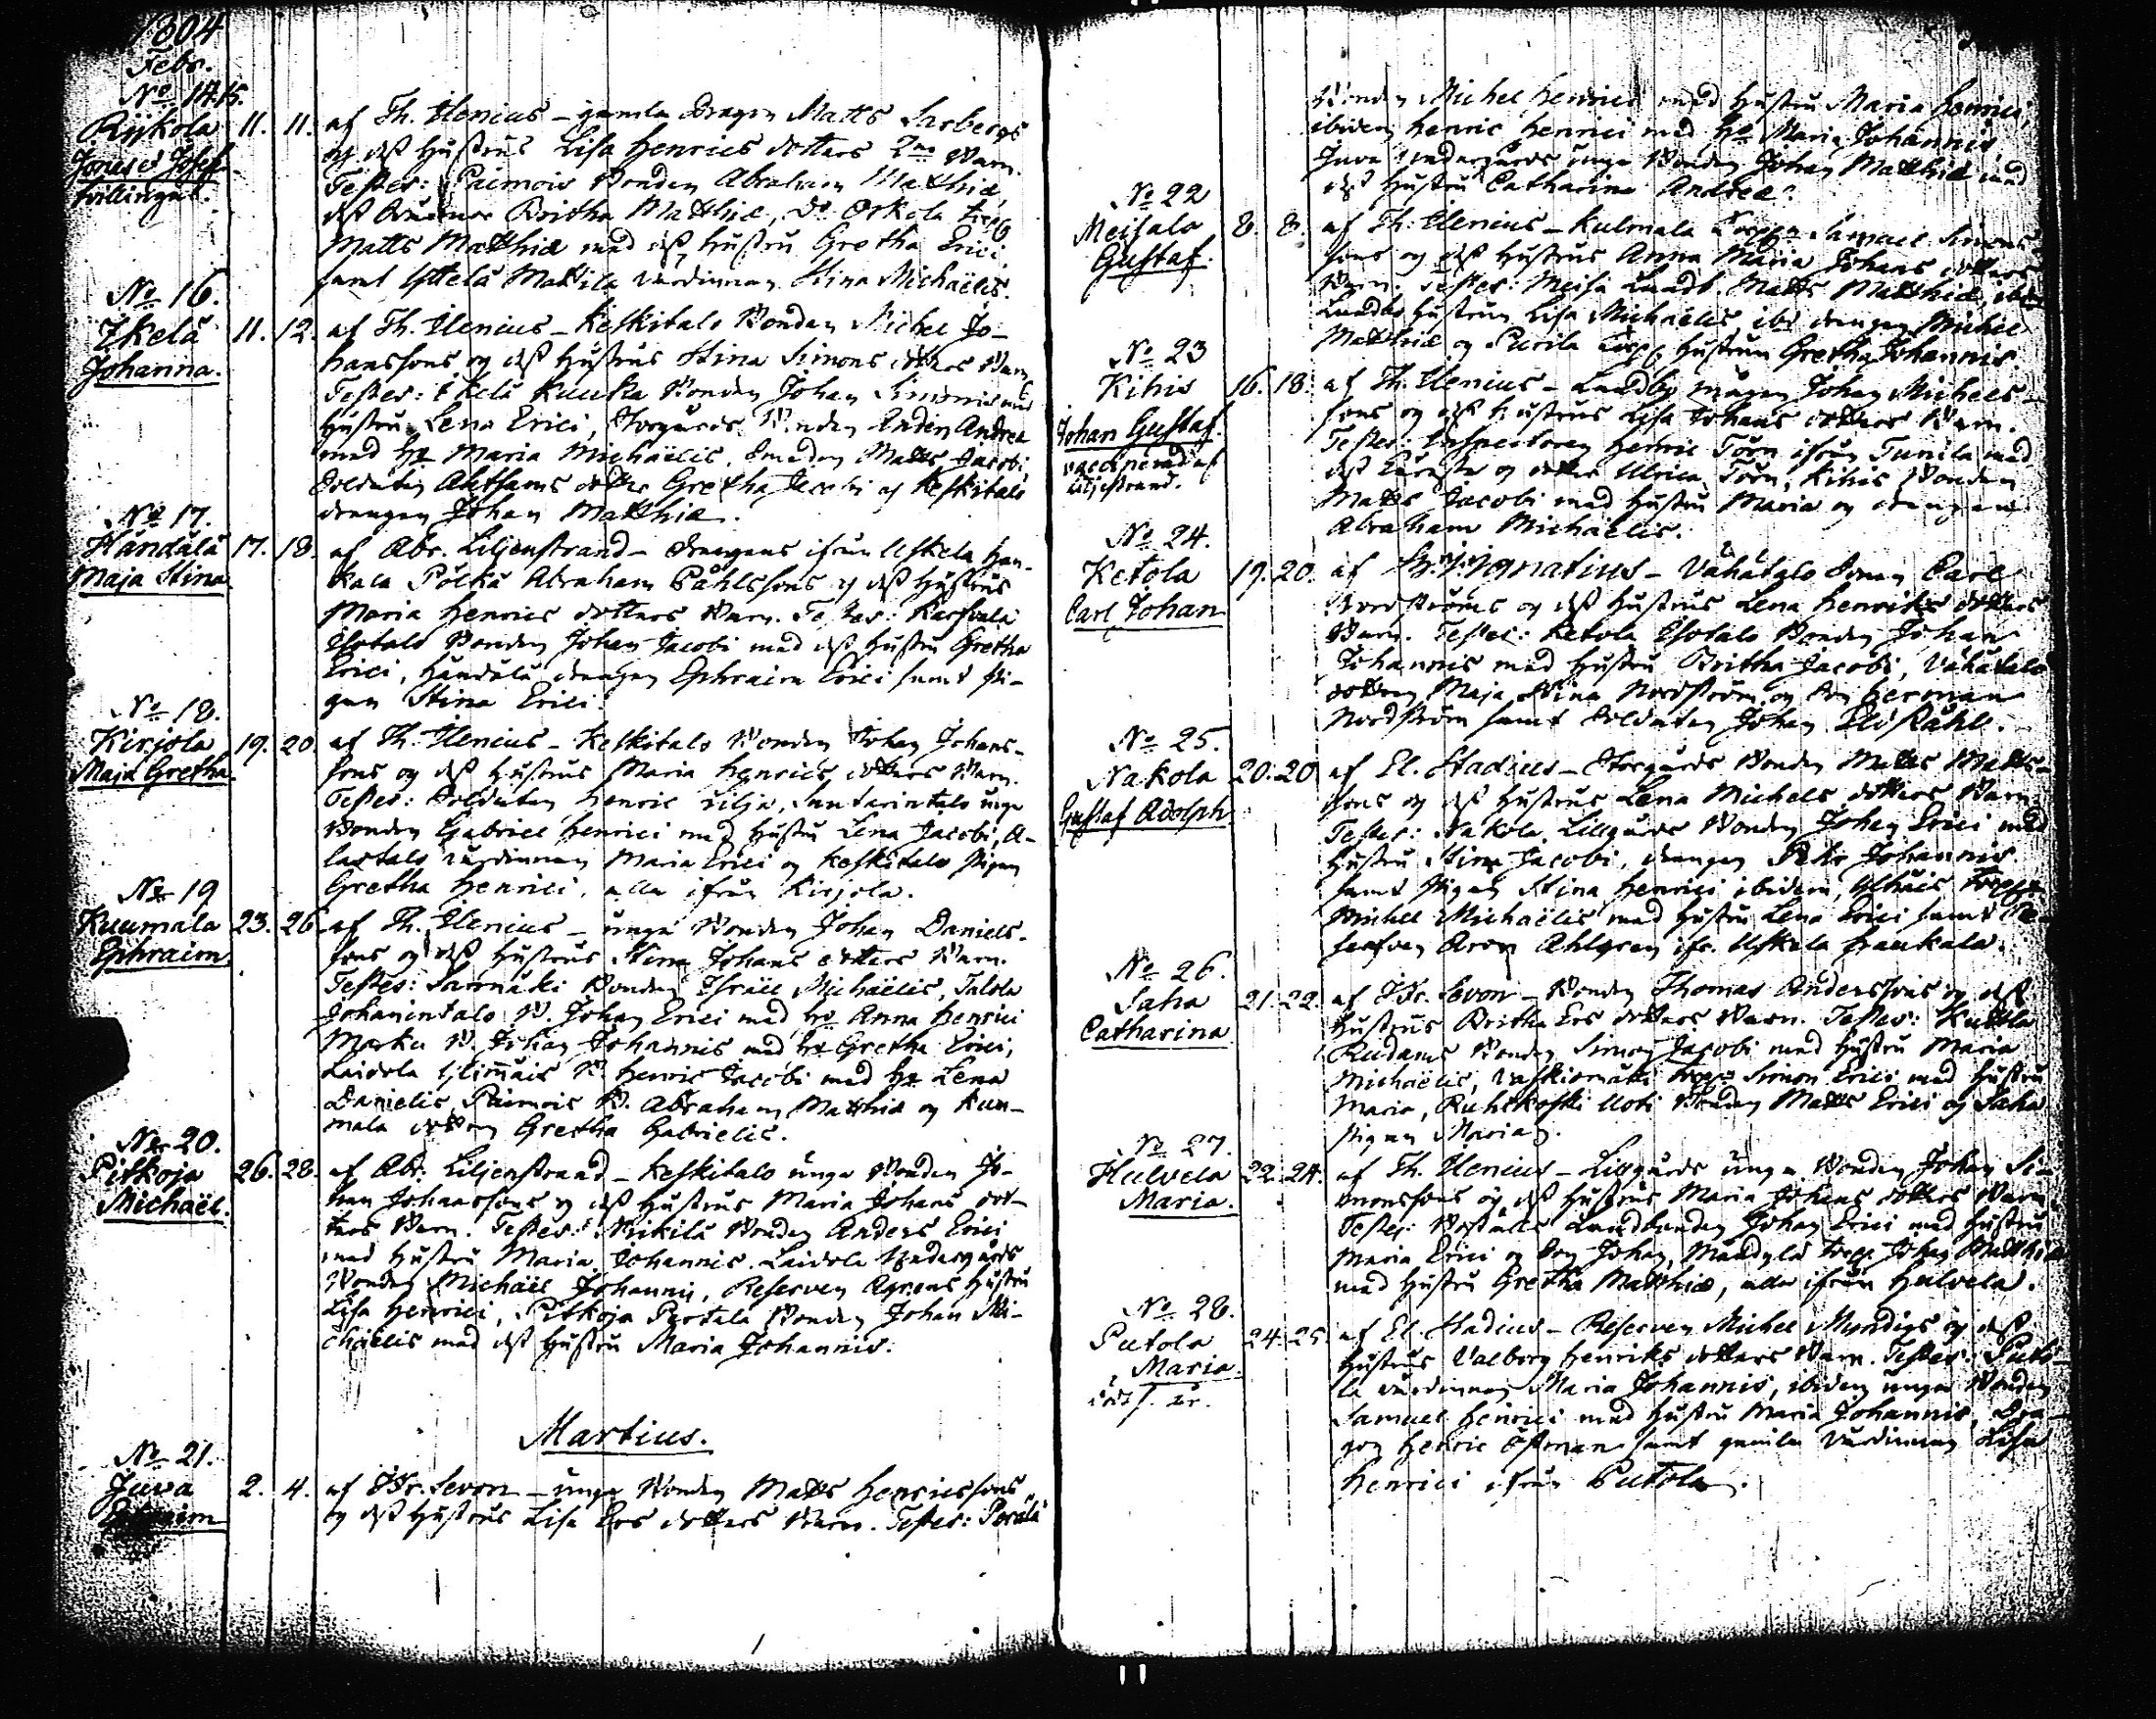 1804
Febr.
No 14.15.
Rijkola 11. 11. af Th. Ilenius – gamla Dragon Matts Sarbergs
Jonas o Josef og dess hustrus Lisa Henrics dotters 2ne Barn.
tvillingar. Testes: Paimois Bonden Abraham Matthiæ,
Britha Matthiæ, Do Torp.
Matts Matthiæ med dess hustru Gretha Erici
samt Yttelä Mattila värdinnan Stina Michaëlis.
No 16.
Ikelä 11. 12. af Th. Ilenius – Keskitalo Bonden Michel Jo-
Johanna. hanssons og dess hustrus Stina Simons dotters Barn
Testes: Ikelä Bonden Johan Simonis med
hustru Lena Erici, Storgårds Bonden Andreæ
med H: Maria Michaëlis, Smeden Matts Jacobi
Soldaten dotter Gretha Jacobi og Keskitalo
drengen Johan Matthiæ.
No 17.
Händälä 17. 18. af Abr. Liljenstrand – drengens ifrån Uskela Hau-
Maja Stina kala Abraham Påhlssons og dess hustrus
Maria Henrics dotters Barn. Testes:
Isotalo Bonden Johan Jacobi med dess hustru Gretha
Erici, Händälä drengen Ephraim Erici samt pi-
gan Stina Erici.
No 18.
Kirjola 19. 20. af Th. Ilenius – Keskitalo Bonden Johan Johans-
Maja Gretha. sons og dess hustrus Maria Henrics dotters Barn.
Testes: Soldaten Henric Lilja, unge
Bonden Gabriel Henrici med hustru Lena Jacobi, A-
lastalo värdinnan Maria Erici og Keskitalo pigan
Gretha Henrici, alla ifrån Kirjola.
No 19
Kuumala 23. 26. af Th. Ilenius – unga Bonden Johan Daniels-
Ephraim sons og dess hustrus Stina Johans dotters Barn.
Testes: Bonden Israël Michaëlis,
Johanintalo B. Johan Erici med H: Anna Henrici
B. Johan Johannis med H: Gretha Erici,
Laidola B. Henric Jacobi med H: Lena
Danielis, Paimois B. Abraham Matthiæ og Kuu-
mala dottren Gretha Gabrielis.
No 20.
Pitkoja 26. 28. af Abr. Liljenstrand – Keskitalo unga Bonden Jo-
Michaël. han Johanssons og dess hustrus Maria Johans dot-
ters Barn. Testes: Nikilä Bonden Anders Erici
med hustru Maria Johannis. Laidola Nedergårds
Bonden Michaël Johannis, Reserven hustru
Lisa Henrici, Pitkoja Pertala Bonden Johan Mi-
chaëlis med dess hustru Maria Johannis.
Martius.
No 21.
Juva 2. 4. af Is. Levon – unga Bonden Matts Henricssons
og dess hustrus Lisa Ers dotters Barn. Testes:
Bonden Michel Henrici med hustru Maria Henrici,
ibidem Henric Henrici med H: Maria Johannis,
Juva Nedergårds unga Bonden Johan Matthiæ med
dess hustru Catharina Andreæ.
No 22
Meisalo 8. 8. af Th: Ilenius – Kulmala Torpp. Samuel Simons-
Gustaf. sons og dess hustrus Anna Maria Johans dotters
Barn. Testes: Meisa Landb. Matts Matthiæ,
Landbo hustrun Lisa Michaëlis, ibd drengen Michel
Matthiæ og Purila Torpp. hustrun Gretha Johannis.
No 23
Kihis 16. 18. af Th. Ilenius – Landbo mågen Johan Michels-
Johan Gustaf. sons og dess hustrus Lisa Johans dotters Barn.
vaccinerad af Testes: Inspectoren Henric Törn ifrån Tunila med
Liljestrand. dess og dotter Ulrica Törn, Kihis Bonden
Matts Jacobi med hustru Maria og drengen
Abraham Michaëlis.
No 24.
Ketola 19. 20. af Ignatius – Vähätalo Carl
Carl Johan Nordströms og dess hustrus Lena Henriks dotters
Barn. Testes: Ketola Isotalo Bonden Johan
Johannis med hustru Britha Jacobi, Vähätalo
dottren Maja Stina Nordström og Herman
Nordström samt Soldaten Johan
No 25.
Nakola 20. 20 af El. Stadius – Storgårds Bonden Matts Matts-
Gustaf Adolph sons og dess hustrus Lena Michels dotters Barn.
Testes: Nakola Lillgårds Bonden Johan Erici med
hustru Stina Jacobi, drengen Petr Johannis
samt pigan Stina Henrici ibidem, Torpp.
Michel Michaëlis med hustru Lena Erici samt Re-
serfven Aron Ahlgren ifr. Uskela Haukala.
No 26.
Saha 21. 22. af Is. Levon – Bonden Thomas Anderssons og dess
Catharina hustrus Britha Ers dotters Barn. Testes: Kuttla
Bonden Simon Jacobi med hustru Maria
Michaëlis, Torpp. Simon Erici med hustru
Maria, Ruhikoski Uoti Bonden Matts Erici og Saha
pigan Maria.
No 27.
Hulvela 22. 24. af Th. Ilenius – Lillgårds unga Bonden Johan Si-
Maria. monssons og dess hustrus Maria Johans dotters Barn
Testes: Landbonden Johan Erici med hustru
Maria Erici og Johan, Torpp. Johan Matthiæ
med hustru Gretha Matthiæ, alla ifrån Hulvela.
No 28.
Putola 24. 25. af El. Stadius – Reserven Michel Myndigs og dess
Maria. hustrus Valborg Henriks dotters Barn. Testes: Puto-
la värdinnan Maria Johannis, ibidem unga Bonden
Samuel Henrici med hustru Maria Johannis, Dra-
gon Henric Östman samt gamla värdinnan Lisa
Henrici ifrån Putola.